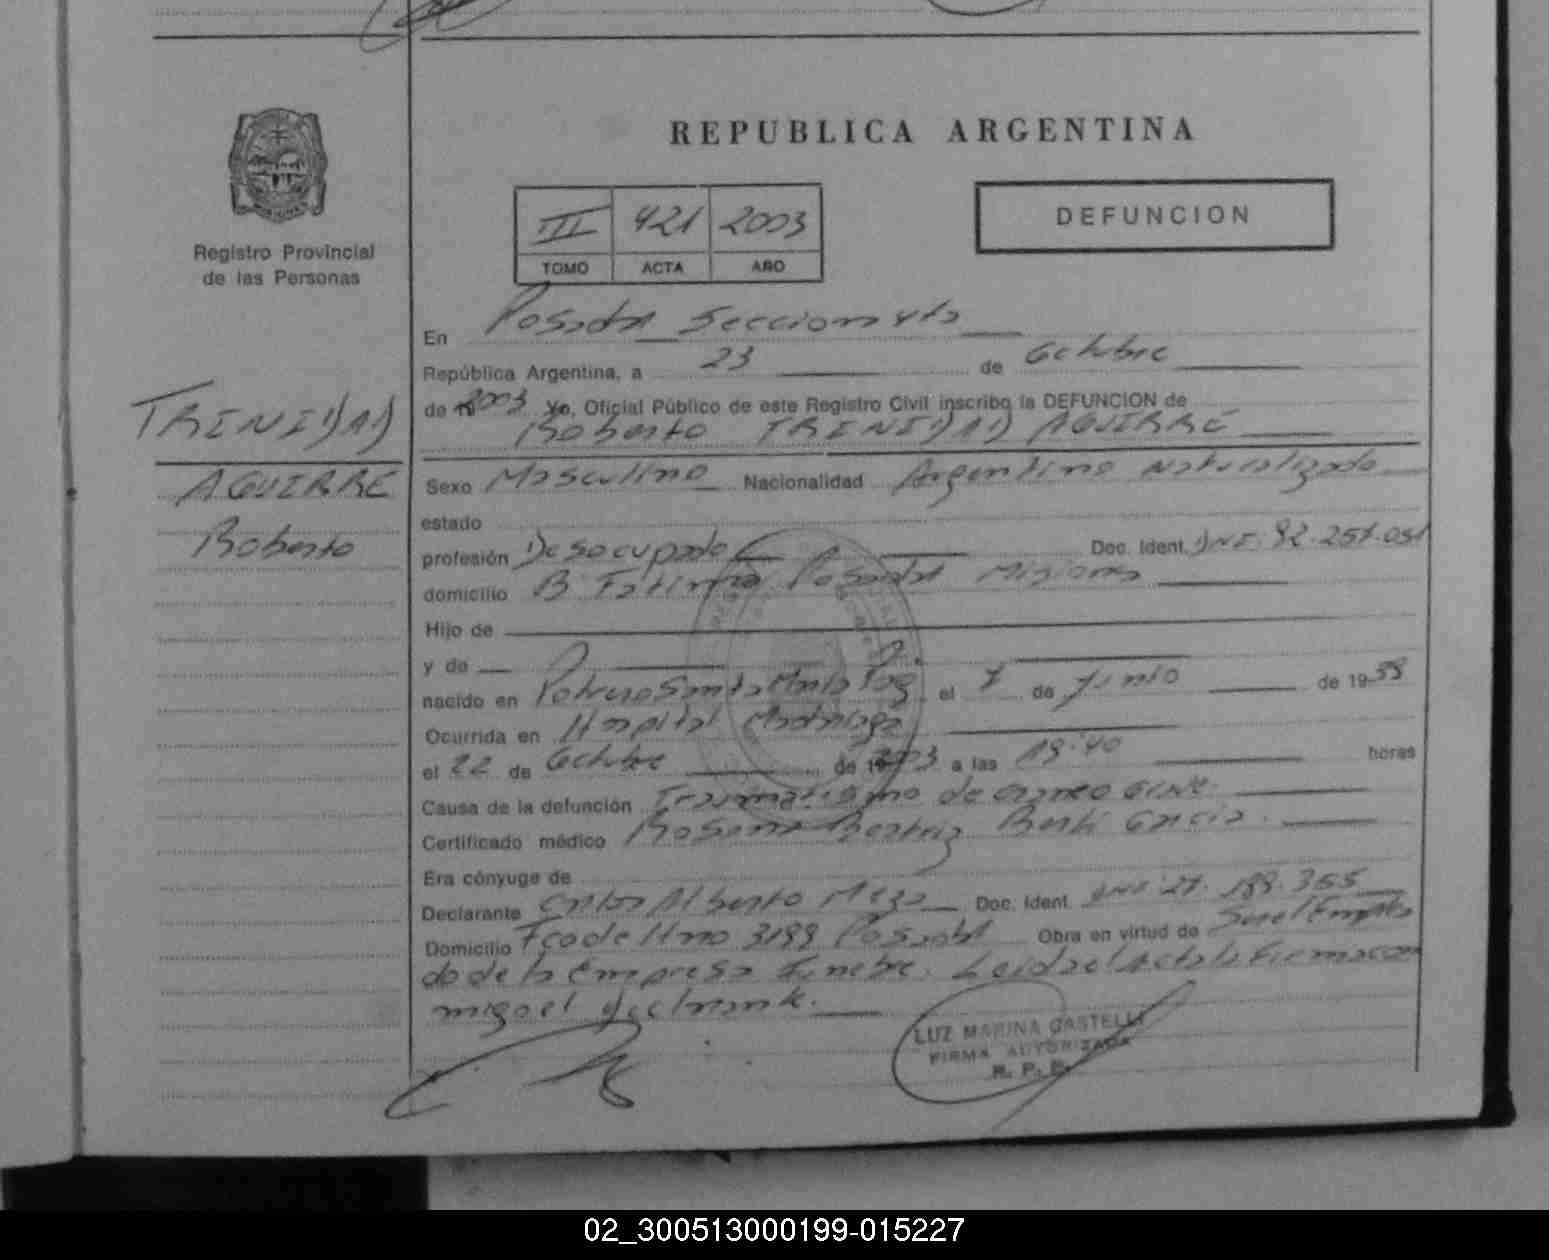 REPUBLICA ARGENTINA
Registro Provincial
de las Personas
III 421 2003
TOMO ACTA AÑO
DEFUNCION
TRINIDAD
AGUIRRE
Roberto
En Posadas Seccion
República Argentina, a 23 de Octubre
de 2003 Yo, Oficial Público de este Registro Civil inscribo la DEFUNCION de
Roberto TRINIDAD AGUIRRE
Sexo Masculino Nacionalidad Argentino Naturalizado
estado
profesión Desocupado Doc. Ident. DNI. 92.251.051
domicilio B Fatima Posadas Misiones
Hijo de
y de
nacido en Potrero Santa Maria Pog el 7 de Junio de 19
Ocurrida en Hospital Madariaga
el 22 de Octubre de 2003 a las 19:40 horas
Causa de la defunción Traumatismo de craneo Grave.
Certificado médico Rosana Beatriz Garcia.
Era cónyuge de
Declarante Carlos Alberto Meza Doc. Ident. DNI 27.188.355
Domicilio Fco de Haro 3199 Posadas Obra en virtud de Ser el Emplea
do de la Empresa Funebre. Leida el Acta la Firma con
migo el declarante.
LUZ MARINA CASTELLI
FIRMA AUTORIZADA
R. P. P.
02_300513000199-015227